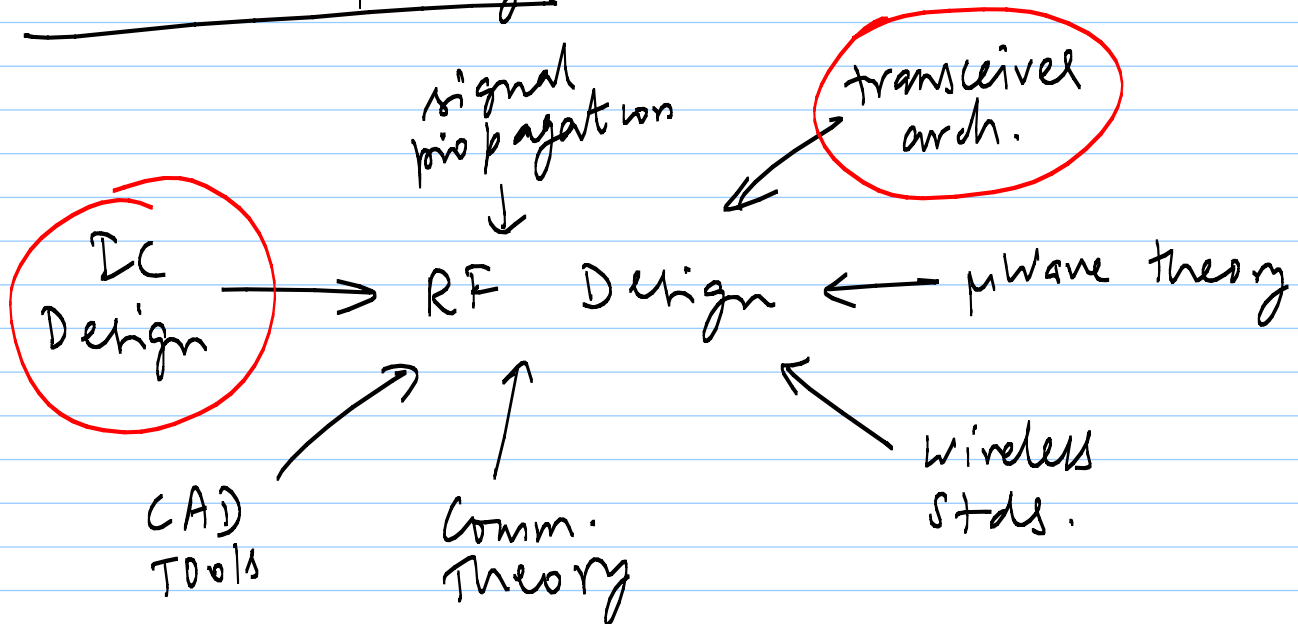 signal
propagation
transceiver
arch.
IC
Design
RF Design
μWave theory
CAD
Tools
Comm.
Theory
Wireless
Stds.